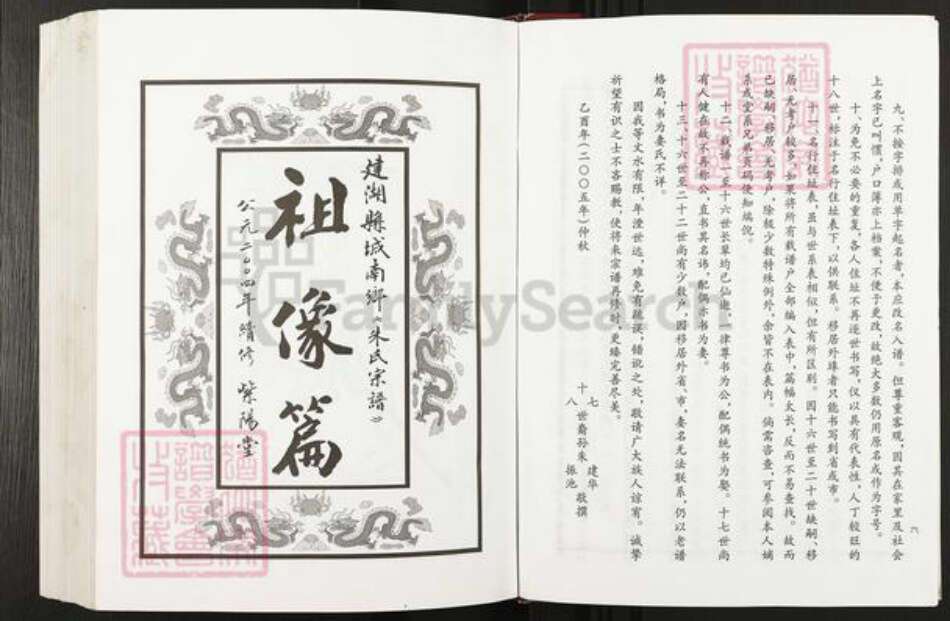 九、不按字排或用单字起名者，本应改名入谱。但尊重客观，因其在家里及社会
上名字已叫惯，户口簿亦上档案，不便于更改，故绝大多数仍用原名或作为字号。
十、为免不必要的重复，各人住址不再逐世书写，仅以具有代表性，人丁较旺的
十八世，标注于名行住址表下，以供联系。移居外埠者只能书写到省或市。
十一、名行住址表，虽与世系表相似，但有所区别。因十六世至二十世缺嗣、移
居、无考户较多，如果将所有载谱户全部编入表中，篇幅太长，反而不易查找。故而
已缺嗣、移居、无考户，除极少数特殊例外，余皆不在表内。倘需咨查，可参阅本人嫡
系或堂系兄弟页码便知端倪。
十二、载谱一至十六世长辈均已仙逝，一律尊书为公，配偶统书为娶。十七世尚
有人健在故不再称公，直书其名讳，配偶亦书为妻。
十三、十六世至二十二世尚有少数户，因移居外省、市，妻名无法联系，仍以老谱
格局，书为妻氏不详。
因我等文水有限，年湮世远，难免有疏误、错说之处，敬请广大族人谅宥。诚挚
祈望有识之士不吝赐教，使得朱宗谱再修时，更臻完善尽美。
十七 建华
世裔孙朱 敬撰
十八 振池
乙酉年（二〇〇五年）仲秋
建湖縣城南鄉《朱氏宗譜》
祖像篇
公元二〇〇四年續修 紫陽堂
FamilySearch